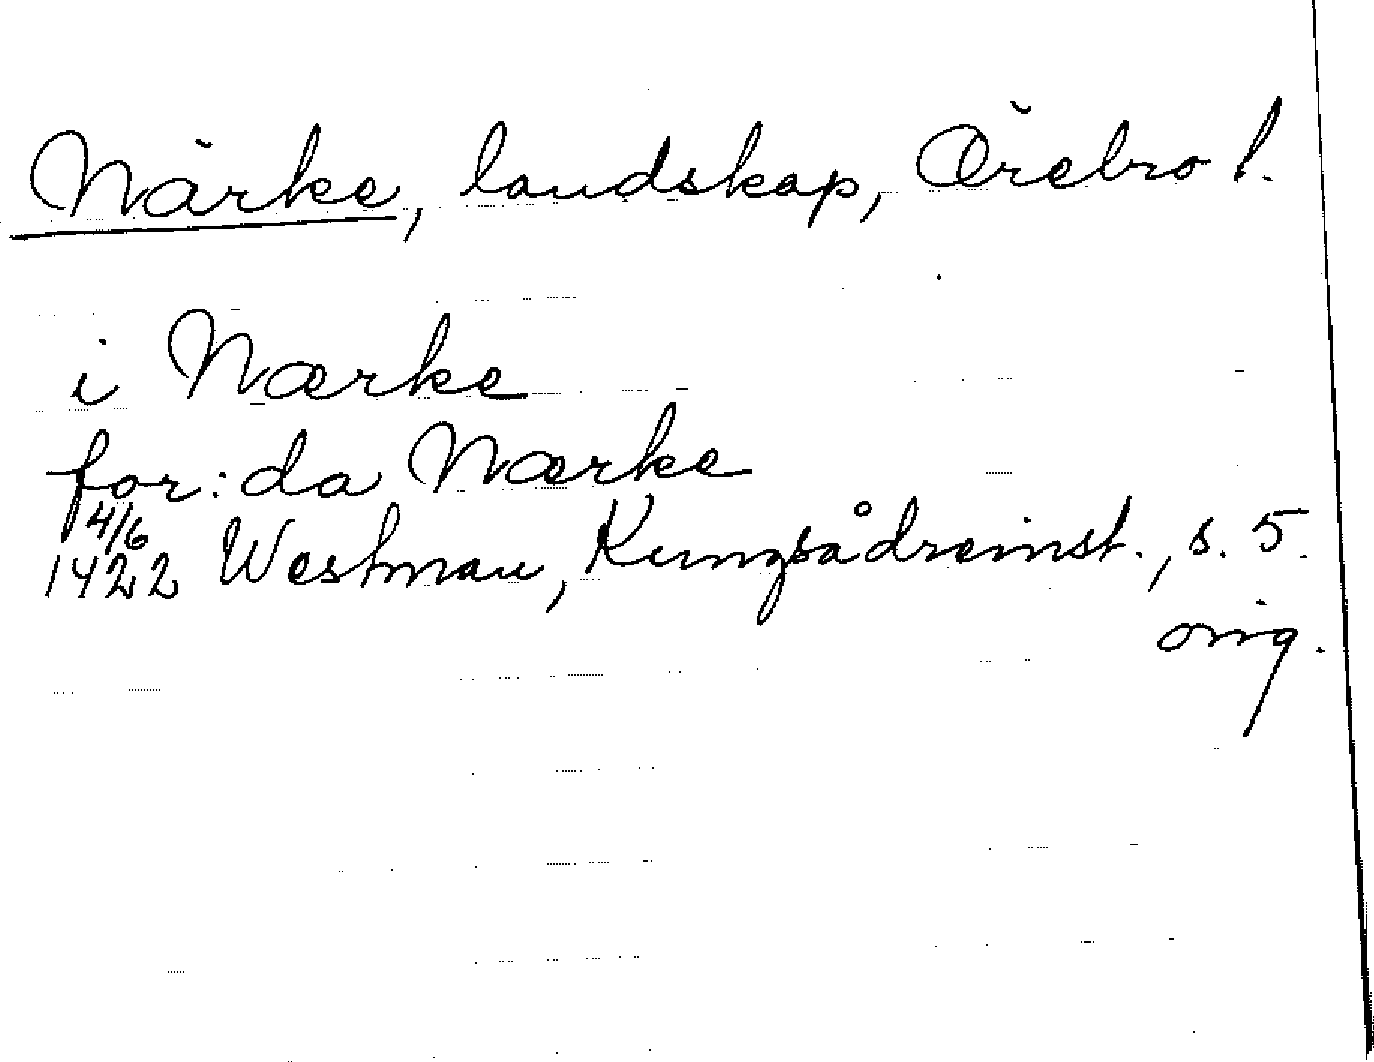 Närke, landskap, Örebro l.
i Nærke
for:da Nærke
4/6
1422 Westman, Kungsådreinst., s. 5.
orig.